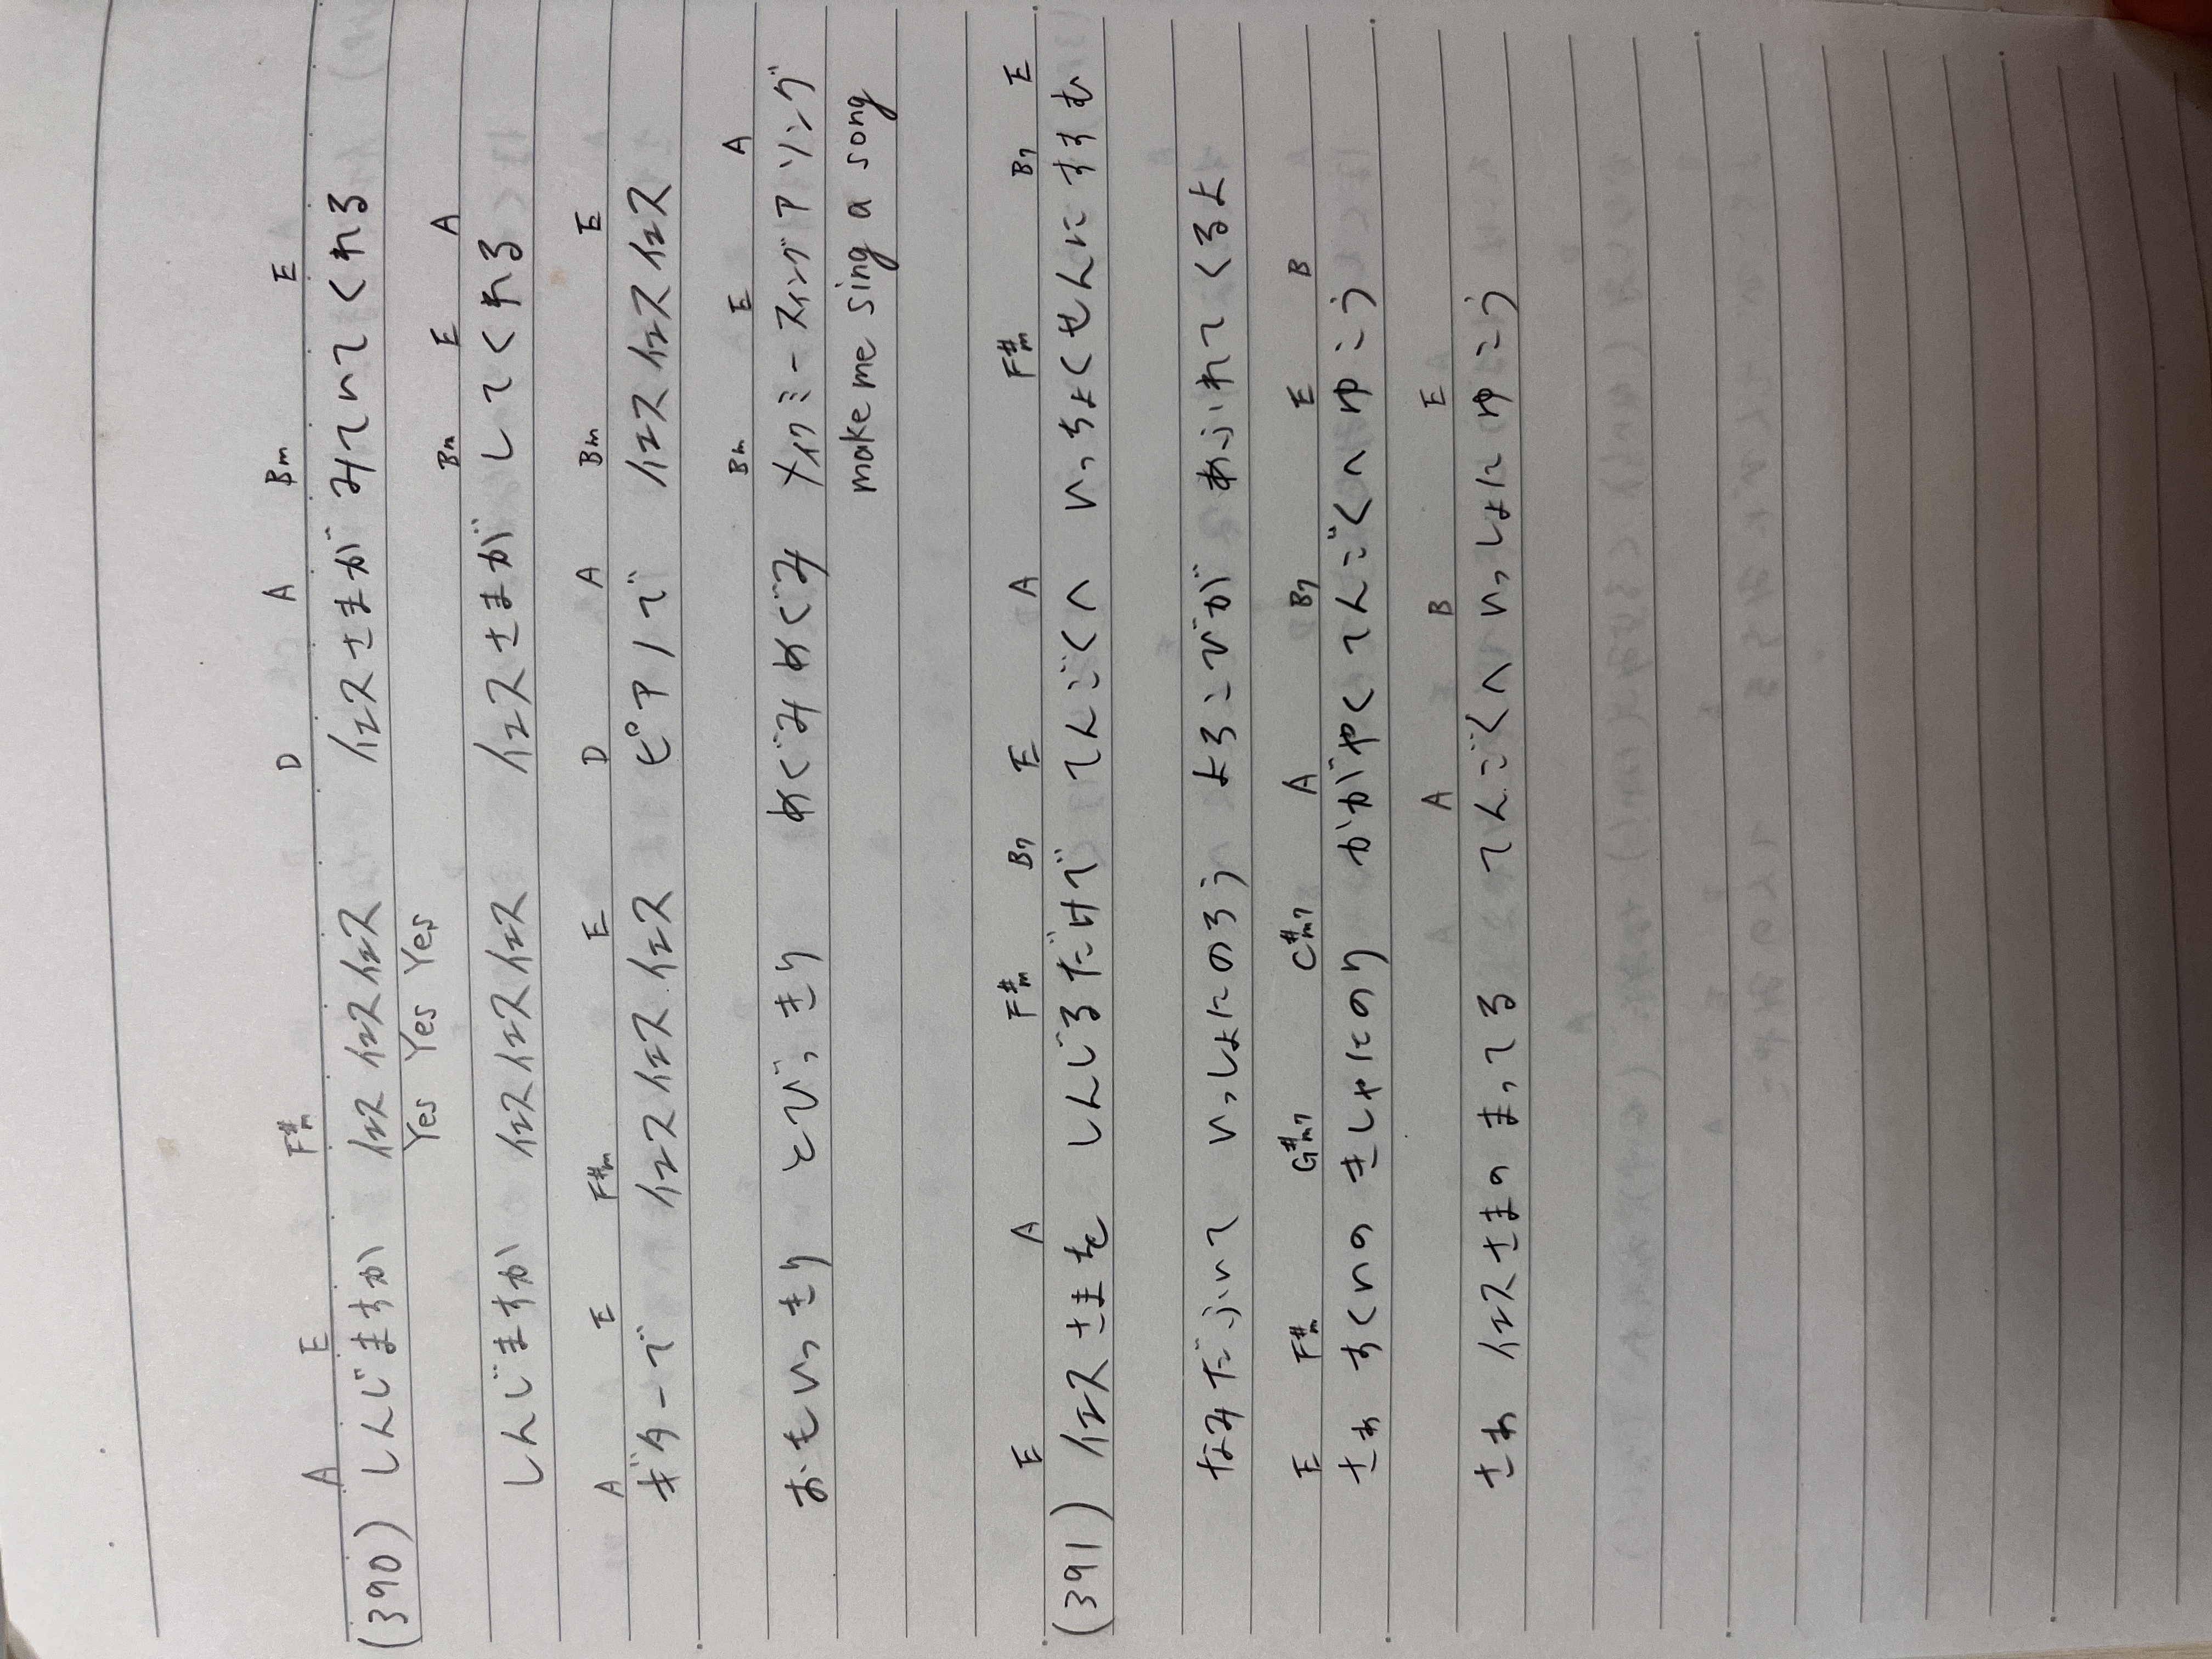 A E F#m D A Bm E
(390) しんじますか イエス イエスイエス イエスさまが みていてくれる
Yes Yes Yes
Bm E A
しんじますか イエスイエスイエス イエスさまが してくれる
A E F#m E D A Bm E
ギターで イエスイエスイエス ピアノで イエスイエスイエス
Bm E A
おもいっきり とびっきり めぐみめぐみ メイクミースィングアソング
make me sing a song
E A F#m B7 E A F#m B7 E
(391) イエスさまを しんじるだけで てんごくへ いっちょくせんにすすむ
なみだふいて いっしょにのろう よろこびが あふれてくるよ
E F#m G#m7 C#m7 A B7 E B
さぁ すくいの きしゃにのり かがやくてんごくへゆこう
A B E
さぁ イエスさまの まってる てんごくへいっしょにゆこう